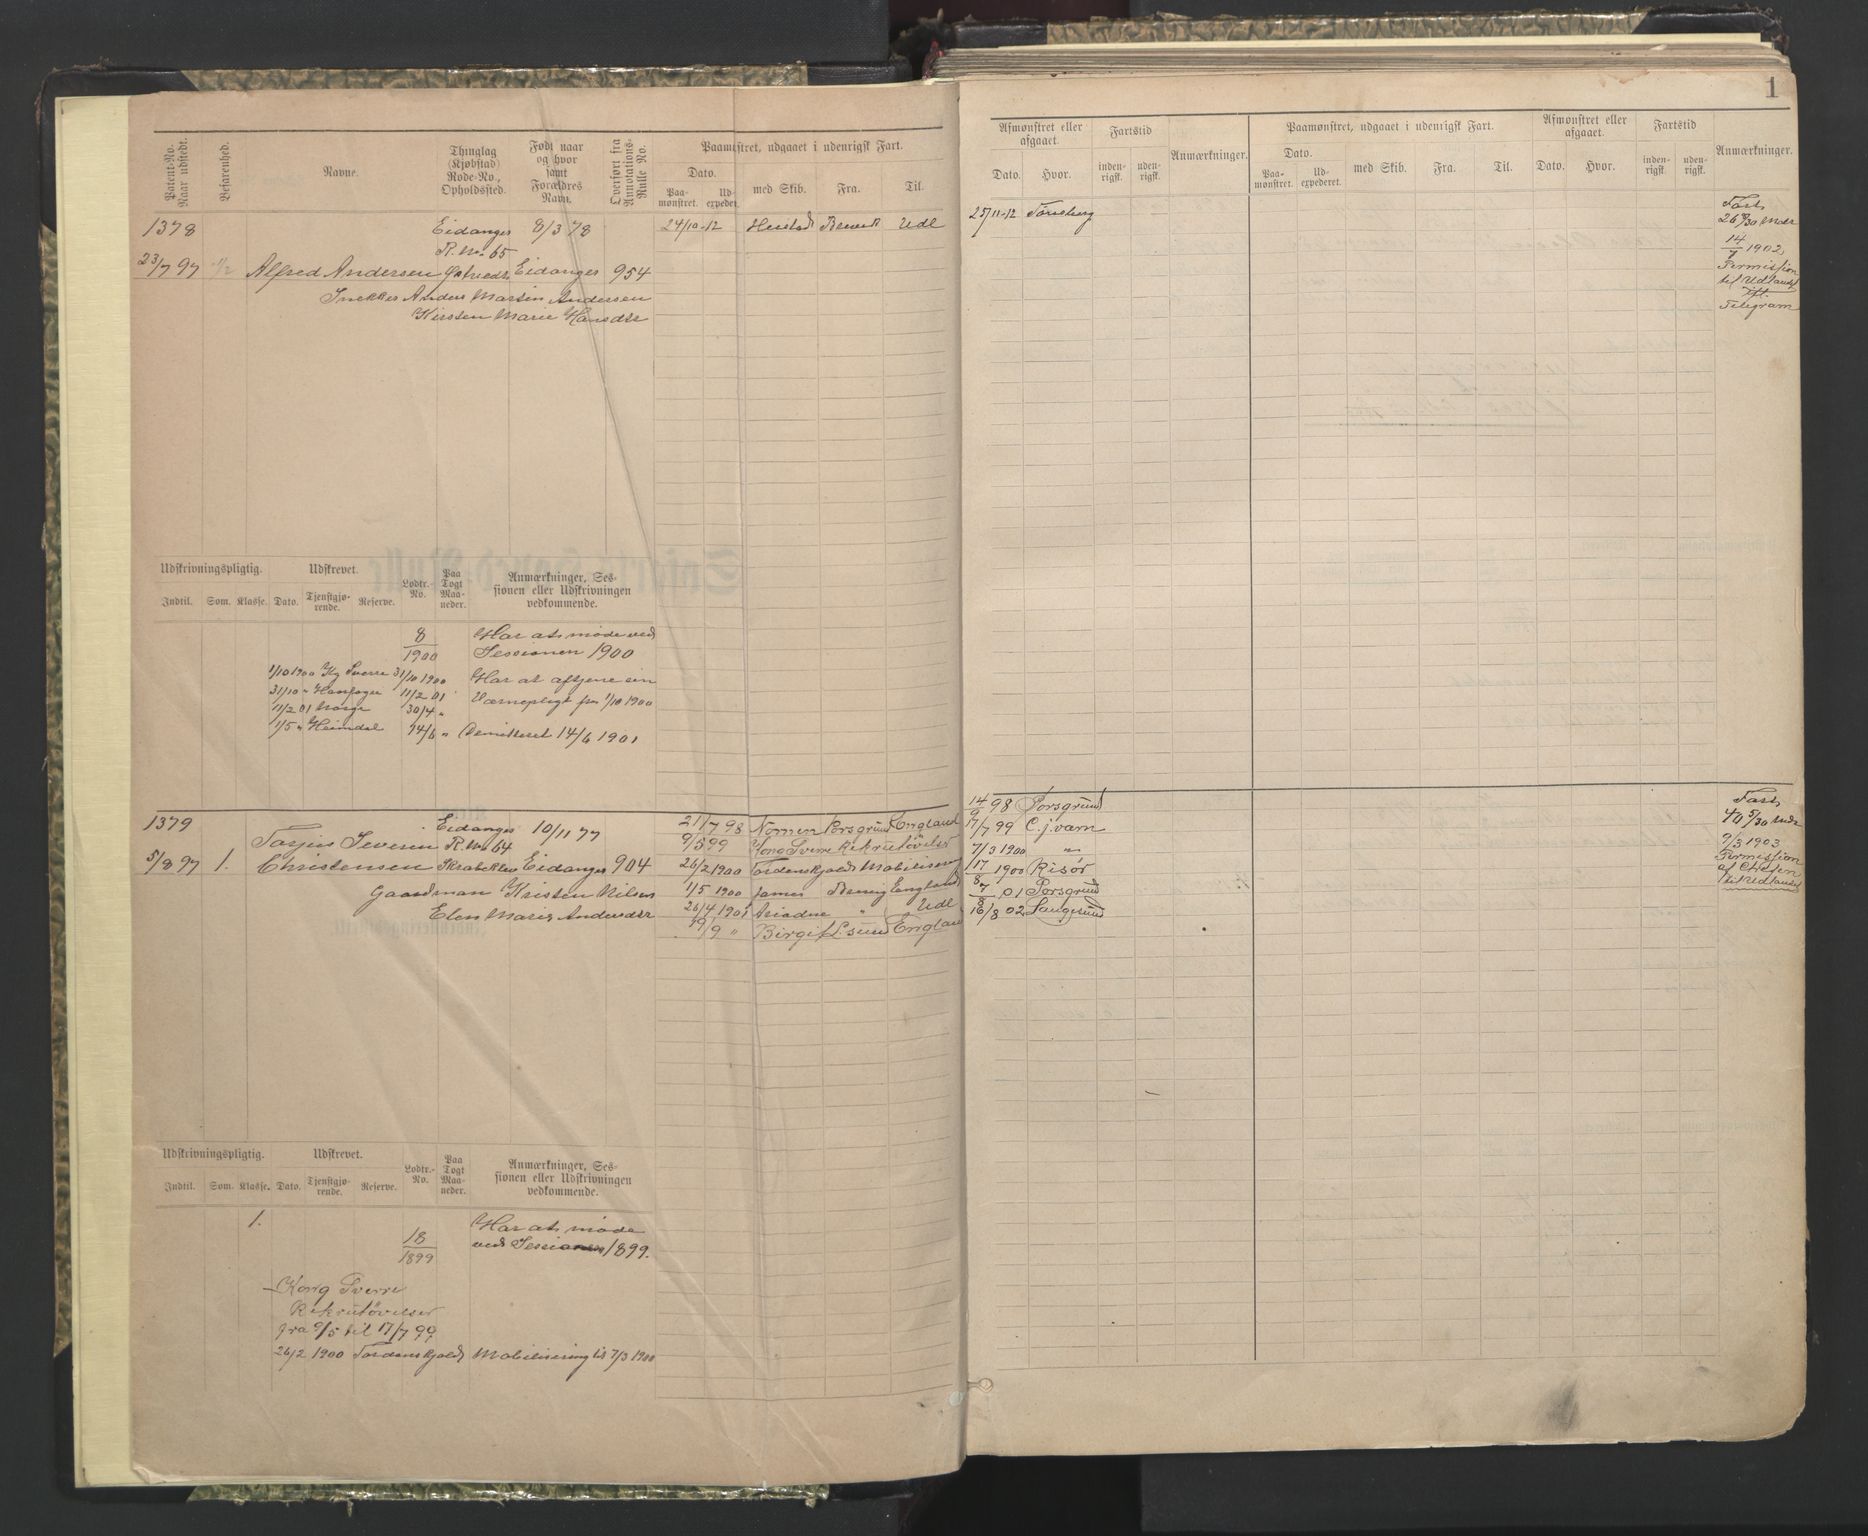 1
Patent-No. Naar udstedt.
Befarenhed.
Navne.
Thinglag (Kjøbstad) Rode-No., Opholdssted.
Født naar og hvor samt Forældres Navn.
Overført fra Annotations-Rulle No.
Paamønstret, udgaaet i udenrigsk Fart.
Dato.
Paa-mønstret.
Ud-expederet.
med Skib.
Fra.
Til.
1378
Eidanger 8/3 78
R. No. 65
23/7 97 1/2 Alfred Andersen Eidanger 954
Snekker Anders Martin Andersen
Kirsten Marie Hansdtr
24/10-12 Heistad Brevik Udl
Udskrivningspligtig. Udskrevet. Lodtr.-No. Paa Togt Maa-neder. Anmærkninger, Ses-sionen eller Udskrivningen vedkommende.
Indtil. Som. Klasse. Dato. Tjenstgjø-rende. Reserve.
8/1900 Har at møde ved
Sessionen 1900
1/10 1900 Kg Sverre 31/10 1900 Har at aftjene sin
31/10 " Haarfagre 11/2 01 Værnepligt fra 1/10 1900
11/2 01 Norge 30/4 "
1/5 " Heimdal 14/6 " Demitteret 14/6 1901
1379
Eidanger 10/11 77
Tarjus Severin R. No 64
5/8 97 1. Christensen Skrabeklev Eidanger 904
Gaardman Kristen Nilsen
Elen Marie Andersdtr
21/7 98 Nornen Porsgrund England
9/5 99 Kong Sverre Rekrutøvelser
26/2 1900 Tordenskjold Mobilisering
1/5 1900 James Brevig England
26/4 1901 Ariadne " Udl
19/9 " Birgit L.sund England
Udskrivningspligtig. Udskrevet. Lodtr.-No. Paa Togt Maa-neder. Anmærkninger, Ses-sionen eller Udskrivningen vedkommende.
Indtil. Som. Klasse. Dato. Tjenstgjø-rende. Reserve.
1.
18/1899 Har at møde
ved Sessionen 1899.
Kong Sverre
Rekrutøvelser
fra 9/5 til 17/7 99
26/2 1900 Tordenskjold Mobilisering til 7/3 1900
Afmønstret eller afgaaet.
Dato. Hvor.
Fartstid
inden-rigsk. uden-rigsk.
Anmærkninger.
Paamønstret, udgaaet i udenrigsk Fart.
Dato.
Paa-mønstret. Ud-expederet. med Skib. Fra. Til.
Afmønstret eller afgaaet.
Dato. Hvor.
Fartstid
inden-rigsk. uden-rigsk.
Anmærkninger.
25/11-12 Tønsberg
Fart
14/7 1902
Permission
til Udlandet
Ifl.
Telegram
14/9 98 Porsgrund
17/7 99 C. j. værn
7/3 1900 "
17/8 1900 Risør
7/8 01 Porsgrund
16/8 02 Langesund
Fart
40 5/30 Mdr
9/3 1903
Permission
af Chefen
til Udlandet